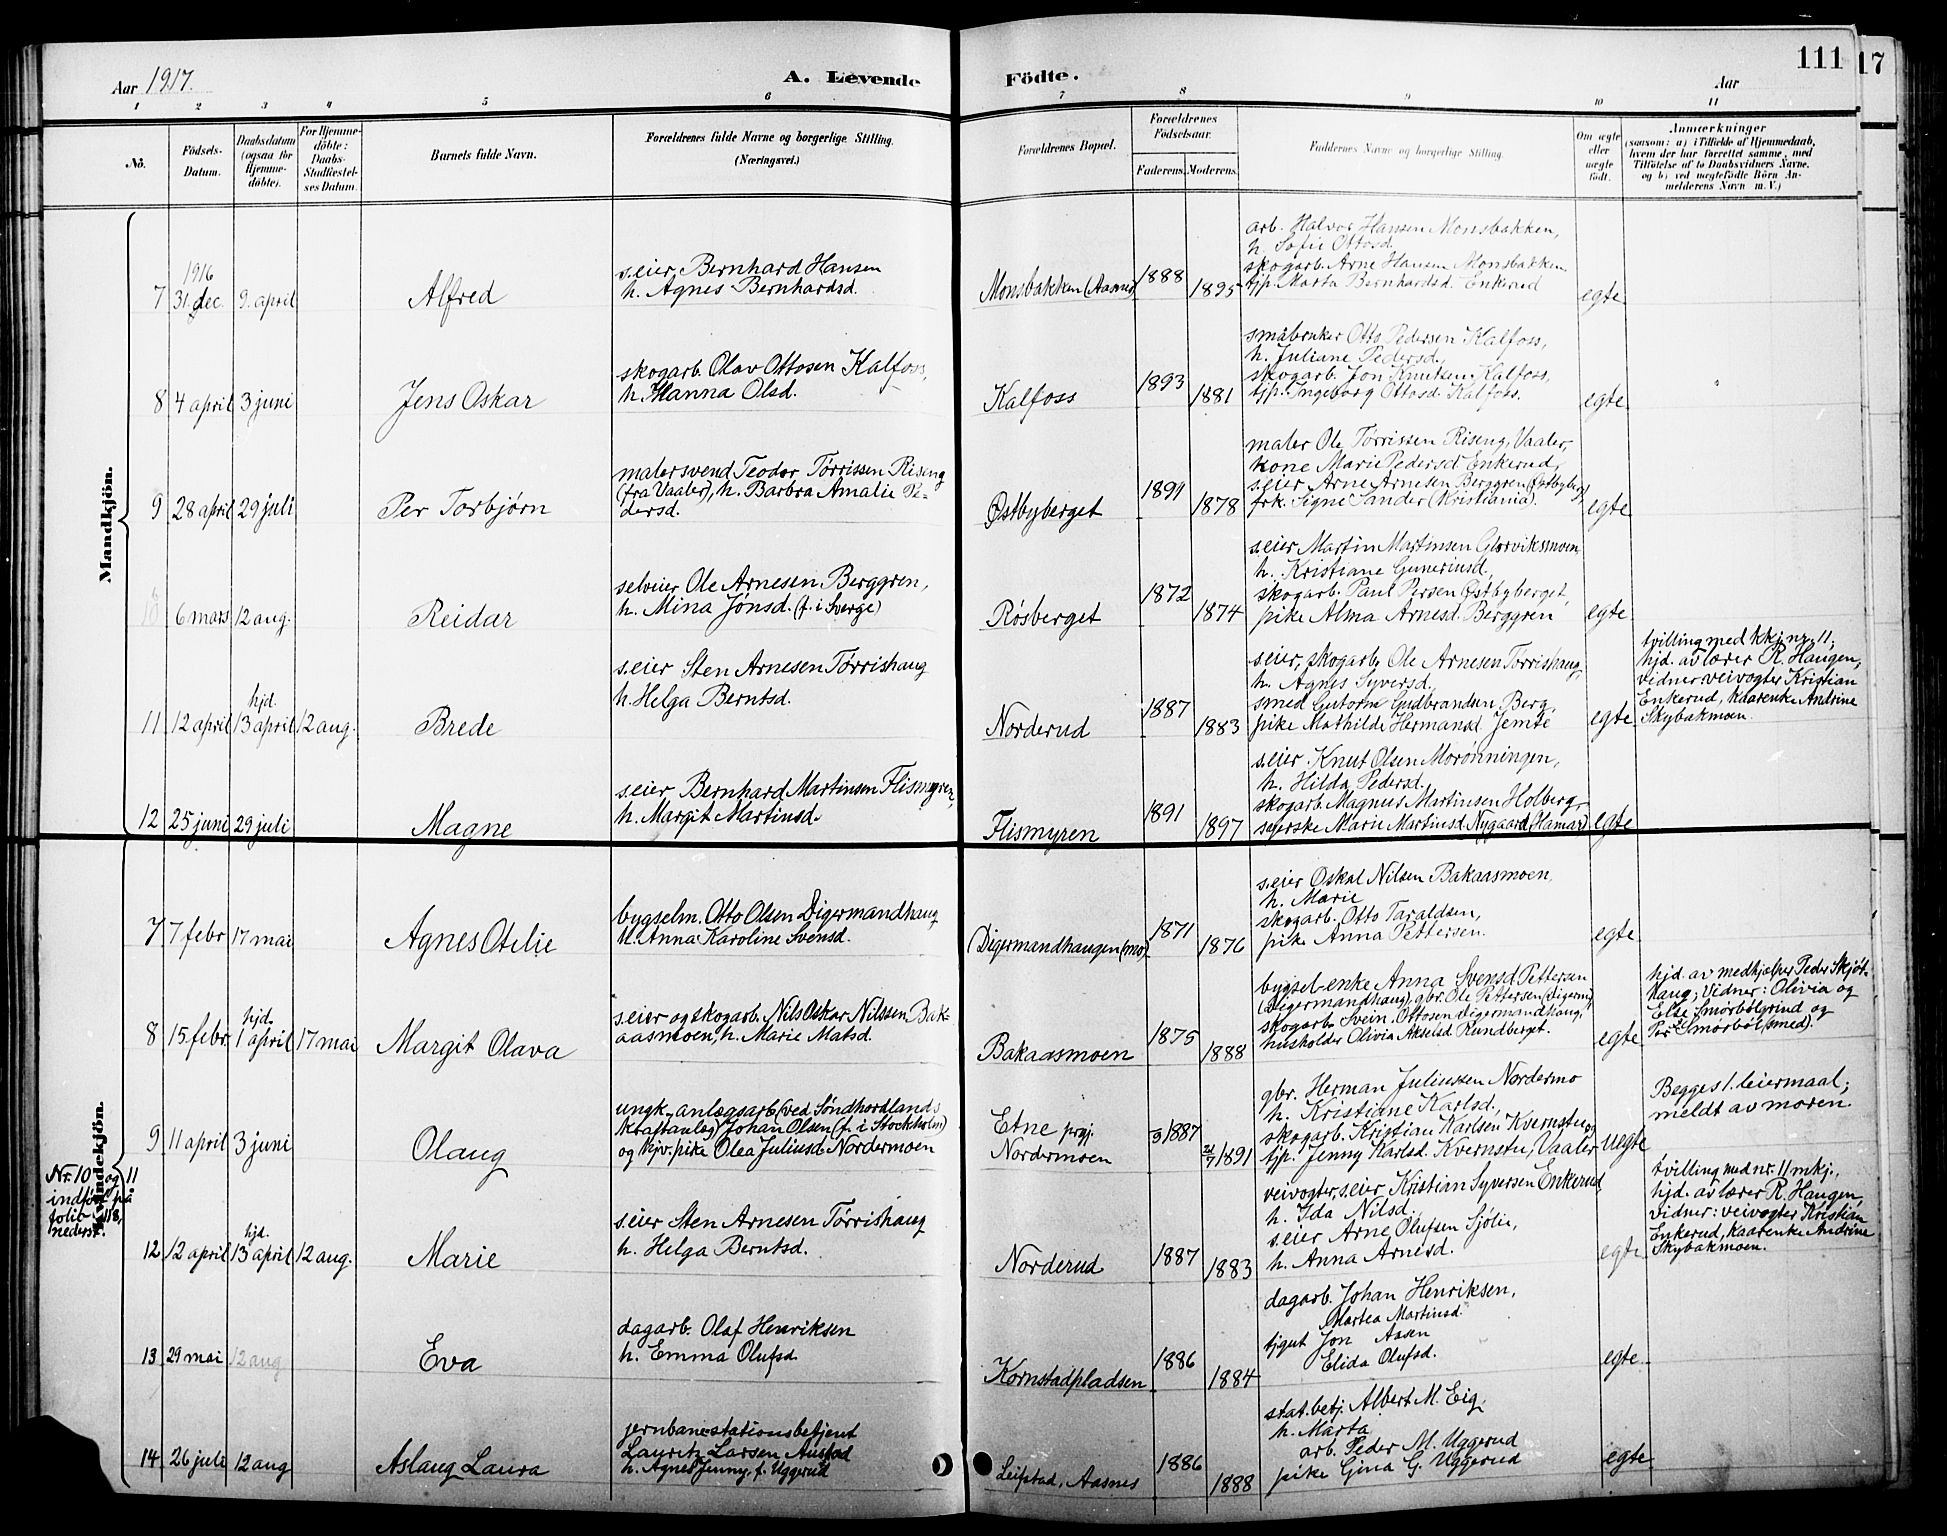 Aar 1917.
A. Levende
Födte.
Aar
111
17
1 2 3 4 5 6 7 8 9 10 11
No.
Födsels-
Datum.
Daabsdatum
(ogsaa for
Hjemme-
döbte).
For Hjemme-
döbte:
Daabs-
Stadfæstel-
ses Datum.
Barnets fulde Navn.
Forældrenes fulde Navne og borgerlige Stilling.
(Næringsvei.)
Forældrenes Bopæl.
Forældrenes
Födselsaar.
Faderens.
Moderens.
Faddernes Navne og borgerlige Stilling.
Om ægte
eller
uægte
født.
Anmærkninger
(saasom: a) i Tilfælde af Hjemmedaab,
hvem der har forrettet samme, med
Tilföielse af to Daabsvidners Navne,
og b) ved uægtefödte Börn An-
melderens Navn m. V.)
Mandkjön.
7
1916
31 dec.
9. april
Alfred
s.eier Bernhard Hansen
h. Agnes Bernhardsd.
Monsbakken (Aasnes)
1888
1895
arb. Halvor Hansen Monsbakken,
h. Sofie Ottosd.
skogarb. Arne Hansen Monsbakken
tjp. Marta Bernhardsd. Enkerud
egte
8
4 april
3 juni
Jens Oskar
skogarb. Olav Ottosen Kalfoss,
h. Hanna Olsd.
Kalfoss
1893
1881
småbruker Otto Pedersen Kalfoss,
h. Juliane Pedersd.,
skogarb. Jon Knutsen Kalfoss,
tjp. Ingeborg Ottosd. Kalfoss.
egte
9
28 april
29 juli
Per Torbjørn
malersvend Teodor Tørrissen Riseng
(fra Vaaler), h. Barbra Amalie Pe-
dersd.
Østbyberget
1891
1878
maler Ole Tørrissen Riseng, Vaaler,
kone Marie Pedersd Enkerud,
s.eier Arne Arnesen Berggren (Østbyberg)
frk. Signe Sander (Kristiania).
egte
10
6 mars
12 aug.
Reidar
selveier Ole Arnesen Berggren,
h. Mina Jonsd. (f. i Sverge)
Røsberget
1872
1874
s.eier Martin Martinsen Glorviksmoen
h. Kristiane Guneriusd.
skogarb. Paul Persen Østbyberget,
pike Alma Arnesd. Berggren
egte
11
12 april
hjd.
13 april
12 aug.
Brede
s.eier Sten Arnesen Tørrishaug
h. Helga Berntsd.
Norderud
1887
1883
s.eier, skogarb. Ole Arnesen Torrishaug,
h. Agnes Syversd.
smed Gutorm Gudbrandsen Berg,
pike Mathilde Hermansd. Jemte
egte
tvilling med kkj. nr. 11;
hjd. av lærer R. Haugen,
vidner veivogter Kristian
Enkerud, kaarenke Andrine
Skybakmoen.
12
25 juni
29 juli
Magne
s.eier Bernhard Martinsen Flismyren,
h. Margit Martinsd.
Flismyren
1891
1897
s.eier Knut Olsen Morønningen,
h. Hilda Pedersd.
skogarb. Magnus Martinsen Holberg,
syerske Marie Martinsd. Nygaard (Hamar)
egte
Kvindekjön.
7
7 febr
17 mai
Agnes Otelie
bygselm. Otto Olsen Digermandhaug
h. Anna Karoline Svensd.
Digermandhaugen (mo)
1871
1876
s.eier Oskal Nilsen Bakaasmoen,
h. Marie
skogarb. Otto Taraldsen,
pike Anna Pettersen.
egte
8
15. febr.
hjd.
1 april
17 mai
Margit Olava
s.eier og skogarb. Nils Oskar Nilssen Bak-
aasmoen, h. Marie Matsd.
Bakaasmoen
1875
1888
bygsel-enke Anna Svensd. Pettersen
(Digermandhaug), gbr. Ole Pettersen (Digerm.)
skogarb. Svein Ottosen Digermandhaug,
husholder Olivia Akselsd. Rundberget.
egte
hjd. av medhjælper Peder Skjøt-
haug; Vidner: Olivia og
Else Smørbølgrind og
Per E Smørbøl (smed).
9
11 april
3 juni
Olaug
ungk. anlægsarb. (ved Søndhordlands
kraftanlæg) Johan Olsen (f. i Stockholm)
og hjv. pike Olea Juliusd. Nordermoen
Etne prgj.
Nordermoen
1887
1891
gbr. Herman Juliussen Nordermo
h. Kristiane Karlsd.,
skogarb. Kristian Karlsen Kvernstu og
tjp. Jenny Karlsd. Kvernstu, Vaaler
uegte
Begges 1. leiermaal;
meldt av moren.
Nr. 10 og 11
indført på
folio 118,
nederst.
12
12 april
hjd.
13 april
12 aug.
Marie
s.eier Sten Arnesen Tørrishaug
h. Helga Berntsd.
Norderud
1887
1883
veivogter, s.eier Kristian Syversen Enkerud,
h. Ida Nilsd.,
s.eier Arne Olufsen Sjølie,
h. Anna Arnesd.
egte
tvilling med nr. 11 mkj.,
hjd. av lærer R. Haugen,
vidner: veivogter Kristian
Enkerud, kaarenke Andrine
Skybakmoen.
13
29 mai
12 aug
Eva
dagarb. Olaf Henriksen
h. Emma Olufsd.
Kornstadpladsen
1886
1884
dagarb. Johan Henriksen,
Martea Martinsd
tjgut Jon Aasen
Elida Olufsd.
egte
14
26 juli
12 aug
Aslaug Laura
jernbanestationsbetjent
Lauritz Larsen Austad
h. Agnes Jenny, f. Uggerud
Leipstad, Aasnes
1886
1888
stat.betj. Albert M. Eig,
h. Marta
arb. Peder M. Uggerud
pike Gina G. Uggerud
egte